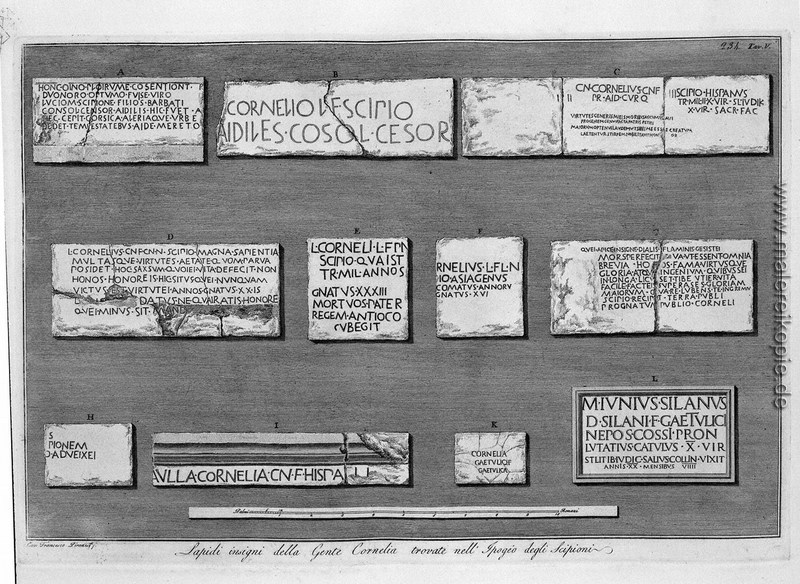 234 Tav. V.
A
HONCOINO·PLOIRVME·COSENTIONT
DVONORO·OPTVMO·FVISE·VIRO
LVCIOM·SCIPIONE·FILIOS·BARBATI
CONSOL·CENSOR·AIDILIS·HIC·FVET·A
HEC·CEPIT·CORSICA·ALERIAQVE·VRBE
DEDET·TEMPESTATEBVS·AIDE·MERETO
B
CORNELIO·L·F·SCIPIO
AIDILES·COSOL·CESOR
C
CN·CORNELIVS·CN·F
PR·AID·CVR·Q
SCIPIO·HISPANVS
TR·MIL·II·X·VIR·SL·IVDIK
X·VIR·SACR·FAC
D
L·CORNELIVS·CN·F·CN·N·SCIPIO·MAGNA·SAPIENTIA
MVLTASQVE·VIRTVTES·AETATE·QVOM·PARVA
POSIDET·HOC·SAXSVM·QVOIEI·VITA·DEFECIT·NON
HONOS·HONORE·IS·HIC·SITVS·QVEI·NVNQVAM
VICTVS·EST·VIRTVTEI·ANNOS·GNATVS·XX·IS
DATVS·NE·QVAIRATIS·HONORE
QVEI·MINVS·SIT·MAND
E
L·CORNELI·L·F·P·N
SCIPIO·QVAIST
TR·MIL·ANNOS
GNATVS·XXXIII
MORTVOS·PATER
REGEM·ANTIOCO
CVBEGIT
F
RNELIVS·L·F·L·N
IO·ASIAGENVS
COMATVS·ANNORV
GNATVS·XVI
QVEI·APICE·INSIGNE·DIALIS·FLAMINIS·GESISTEI
MORS·PERFECIT·TVA·VT·ESSENT·OMNIA
BREVIA·HONOS·FAMA·VIRTVSQVE
GLORIA·ATQVE·INGENIVM·QVIBVS·SEI
IN·LONGA·LICVISET·TIBE·VTIER·VITA
FACILE·FACTEIS·SVPERASES·GLORIAM
MAIORVM·QVARE·LVBENS·TE·IN·GREMIV
SCIPIO·RECIPIT·TERRA·PVBLI
PROGNATVM·PVBLIO·CORNELI
H
S
PIONEM
O·ADVEIXEI
I
AVLLA·CORNELIA·CN·F·HISPALLI
K
CORNELIA
GAETVLICI·F
GAETVLICA
L
M·IVNIVS·SILANVS
D·SILANI·F·GAETVLICI
NEPOS·COSSI·PRON
LVTATIVS·CATVLVS·X·VIR
STLITIB·IVDIC·SALIVS·COLLIN·VIXIT
ANNIS·XX·MENSIBVS VIIII
Romani
Cav. Francesco Piranesi f.
Lapidi insigni della Gente Cornelia trovate nell' Ipogèo degli Scipioni
www.malereikopie.de